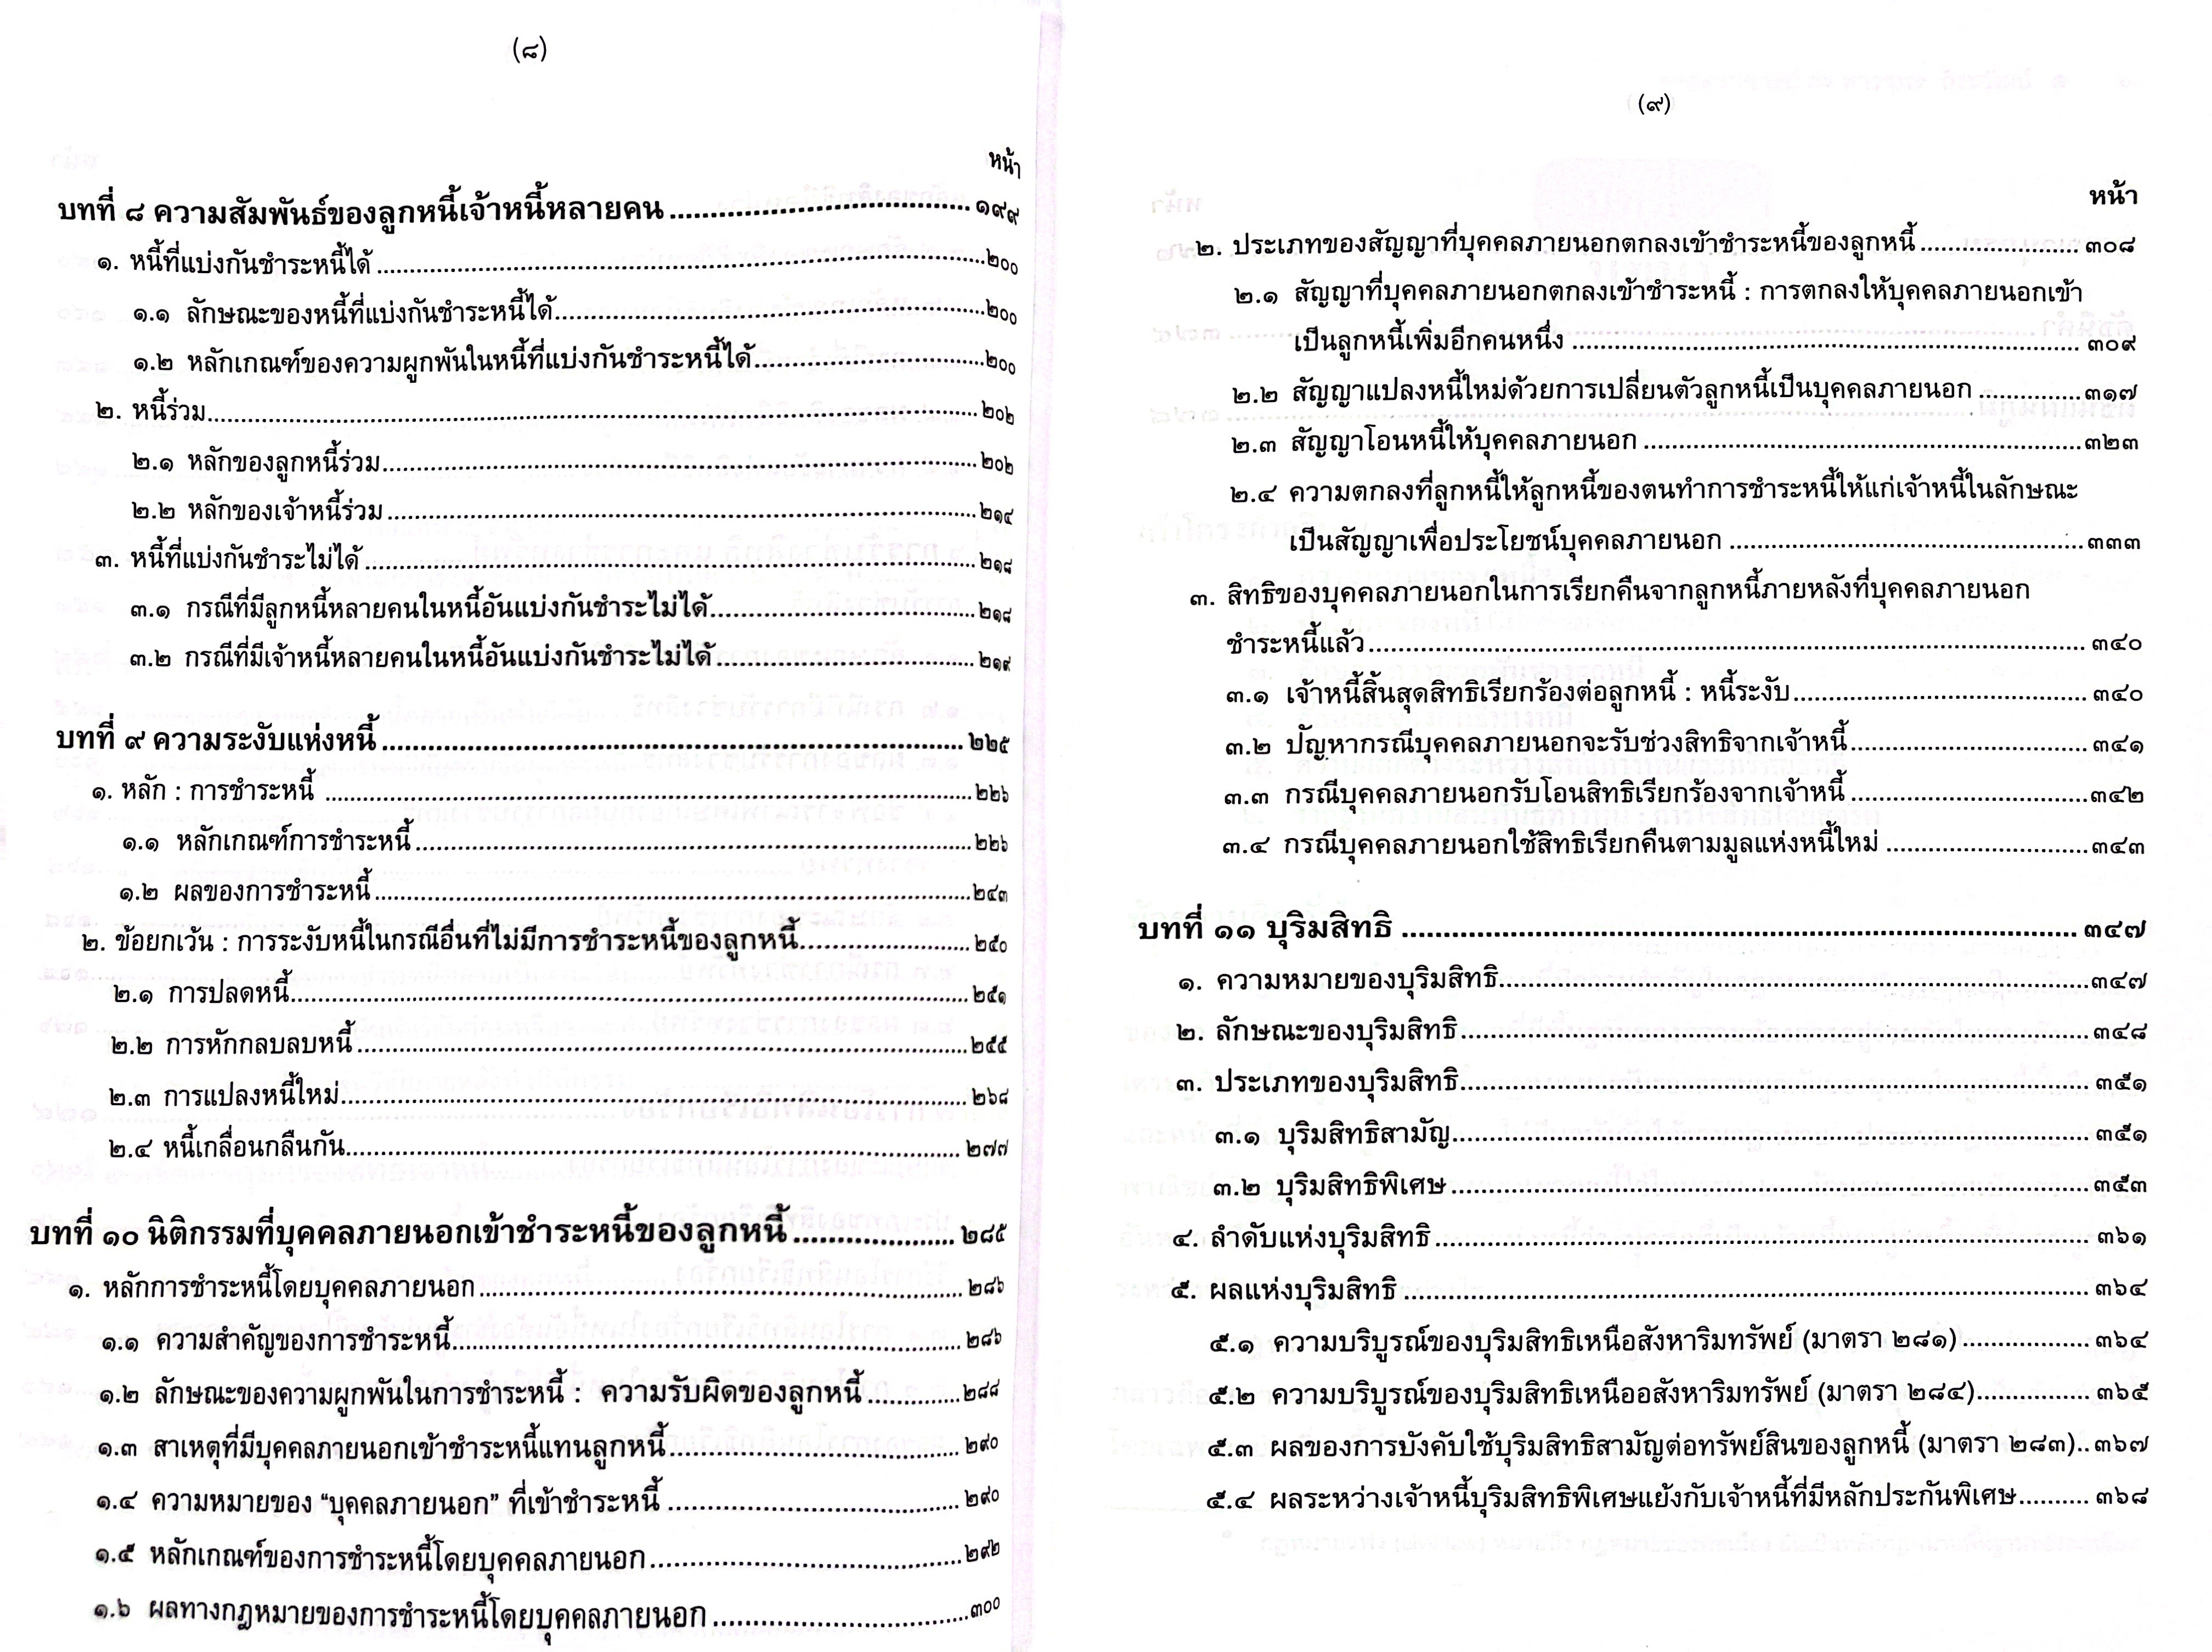 (๘)
หน้า
บทที่ ๘ ความสัมพันธ์ของลูกหนี้เจ้าหนี้หลายคน ................................................ ๑๙๙
๑. หนี้ที่แบ่งกันชำระหนี้ได้ ................................................ ๒๐๐
๑.๑ ลักษณะของหนี้ที่แบ่งกันชำระหนี้ได้ ................................................ ๒๐๐
๑.๒ หลักเกณฑ์ของความผูกพันในหนี้ที่แบ่งกันชำระหนี้ได้ ................................................ ๒๐๐
๒. หนี้ร่วม ................................................ ๒๐๒
๒.๑ หลักของลูกหนี้ร่วม ................................................ ๒๐๒
๒.๒ หลักของเจ้าหนี้ร่วม ................................................ ๒๑๔
๓. หนี้ที่แบ่งกันชำระไม่ได้ ................................................ ๒๑๘
๓.๑ กรณีที่มีลูกหนี้หลายคนในหนี้อันแบ่งกันชำระไม่ได้ ................................................ ๒๑๘
๓.๒ กรณีที่มีเจ้าหนี้หลายคนในหนี้อันแบ่งกันชำระไม่ได้ ................................................ ๒๑๙
บทที่ ๙ ความระงับแห่งหนี้ ................................................ ๒๒๕
๑. หลัก : การชำระหนี้ ................................................ ๒๒๖
๑.๑ หลักเกณฑ์การชำระหนี้ ................................................ ๒๒๖
๑.๒ ผลของการชำระหนี้ ................................................ ๒๔๓
๒. ข้อยกเว้น : การระงับหนี้ในกรณีอื่นที่ไม่มีการชำระหนี้ของลูกหนี้ ................................................ ๒๕๐
๒.๑ การปลดหนี้ ................................................ ๒๕๑
๒.๒ การหักกลบลบหนี้ ................................................ ๒๕๕
๒.๓ การแปลงหนี้ใหม่ ................................................ ๒๖๘
๒.๔ หนี้เกลื่อนกลืนกัน ................................................ ๒๗๗
บทที่ ๑๐ นิติกรรมที่บุคคลภายนอกเข้าชำระหนี้ของลูกหนี้ ................................................ ๒๘๕
๑. หลักการชำระหนี้โดยบุคคลภายนอก ................................................ ๒๘๖
๑.๑ ความสำคัญของการชำระหนี้ ................................................ ๒๘๖
๑.๒ ลักษณะของความผูกพันในการชำระหนี้ : ความรับผิดของลูกหนี้ ................................................ ๒๘๘
๑.๓ สาเหตุที่มีบุคคลภายนอกเข้าชำระหนี้แทนลูกหนี้ ................................................ ๒๙๐
๑.๔ ความหมายของ “บุคคลภายนอก” ที่เข้าชำระหนี้ ................................................ ๒๙๐
๑.๕ หลักเกณฑ์ของการชำระหนี้โดยบุคคลภายนอก ................................................ ๒๙๒
๑.๖ ผลทางกฎหมายของการชำระหนี้โดยบุคคลภายนอก ................................................ ๓๐๐
(๙)
หน้า
๒. ประเภทของสัญญาที่บุคคลภายนอกตกลงเข้าชำระหนี้ของลูกหนี้ ................................................ ๓๐๘
๒.๑ สัญญาที่บุคคลภายนอกตกลงเข้าชำระหนี้ : การตกลงให้บุคคลภายนอกเข้า
เป็นลูกหนี้เพิ่มอีกคนหนึ่ง ................................................ ๓๐๙
๒.๒ สัญญาแปลงหนี้ใหม่ด้วยการเปลี่ยนตัวลูกหนี้เป็นบุคคลภายนอก ................................................ ๓๑๗
๒.๓ สัญญาโอนหนี้ให้บุคคลภายนอก ................................................ ๓๒๓
๒.๔ ความตกลงที่ลูกหนี้ให้ลูกหนี้ของตนทำการชำระหนี้ให้แก่เจ้าหนี้ในลักษณะ
เป็นสัญญาเพื่อประโยชน์บุคคลภายนอก ................................................ ๓๓๓
๓. สิทธิของบุคคลภายนอกในการเรียกคืนจากลูกหนี้ภายหลังที่บุคคลภายนอก
ชำระหนี้แล้ว ................................................ ๓๔๐
๓.๑ เจ้าหนี้สิ้นสุดสิทธิเรียกร้องต่อลูกหนี้ : หนี้ระงับ ................................................ ๓๔๐
๓.๒ ปัญหากรณีบุคคลภายนอกจะรับช่วงสิทธิจากเจ้าหนี้ ................................................ ๓๔๑
๓.๓ กรณีบุคคลภายนอกรับโอนสิทธิเรียกร้องจากเจ้าหนี้ ................................................ ๓๔๒
๓.๔ กรณีบุคคลภายนอกใช้สิทธิเรียกคืนตามมูลแห่งหนี้ใหม่ ................................................ ๓๔๓
บทที่ ๑๑ บุริมสิทธิ ................................................ ๓๔๗
๑. ความหมายของบุริมสิทธิ ................................................ ๓๔๗
๒. ลักษณะของบุริมสิทธิ ................................................ ๓๔๘
๓. ประเภทของบุริมสิทธิ ................................................ ๓๕๑
๓.๑ บุริมสิทธิสามัญ ................................................ ๓๕๑
๓.๒ บุริมสิทธิพิเศษ ................................................ ๓๕๓
๔. ลำดับแห่งบุริมสิทธิ ................................................ ๓๖๑
๕. ผลแห่งบุริมสิทธิ ................................................ ๓๖๔
๕.๑ ความบริบูรณ์ของบุริมสิทธิเหนือสังหาริมทรัพย์ (มาตรา ๒๘๑) ................................................ ๓๖๔
๕.๒ ความบริบูรณ์ของบุริมสิทธิเหนืออสังหาริมทรัพย์ (มาตรา ๒๘๔) ................................................ ๓๖๕
๕.๓ ผลของการบังคับใช้บุริมสิทธิสามัญต่อทรัพย์สินของลูกหนี้ (มาตรา ๒๘๓) .. ๓๖๗
๕.๔ ผลระหว่างเจ้าหนี้บุริมสิทธิพิเศษแย้งกับเจ้าหนี้ที่มีหลักประกันพิเศษ .......... ๓๖๘